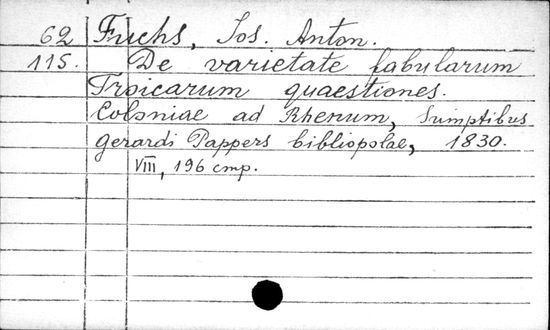 62 Fuchs, Jos. Anton.
115. De varietate fabularum
Troicarum quaestiones.
Coloniae ad Rhenum, Sumptibus
Gerardi Pappers bibliopolae, 1830.
VIII, 196 cmp.